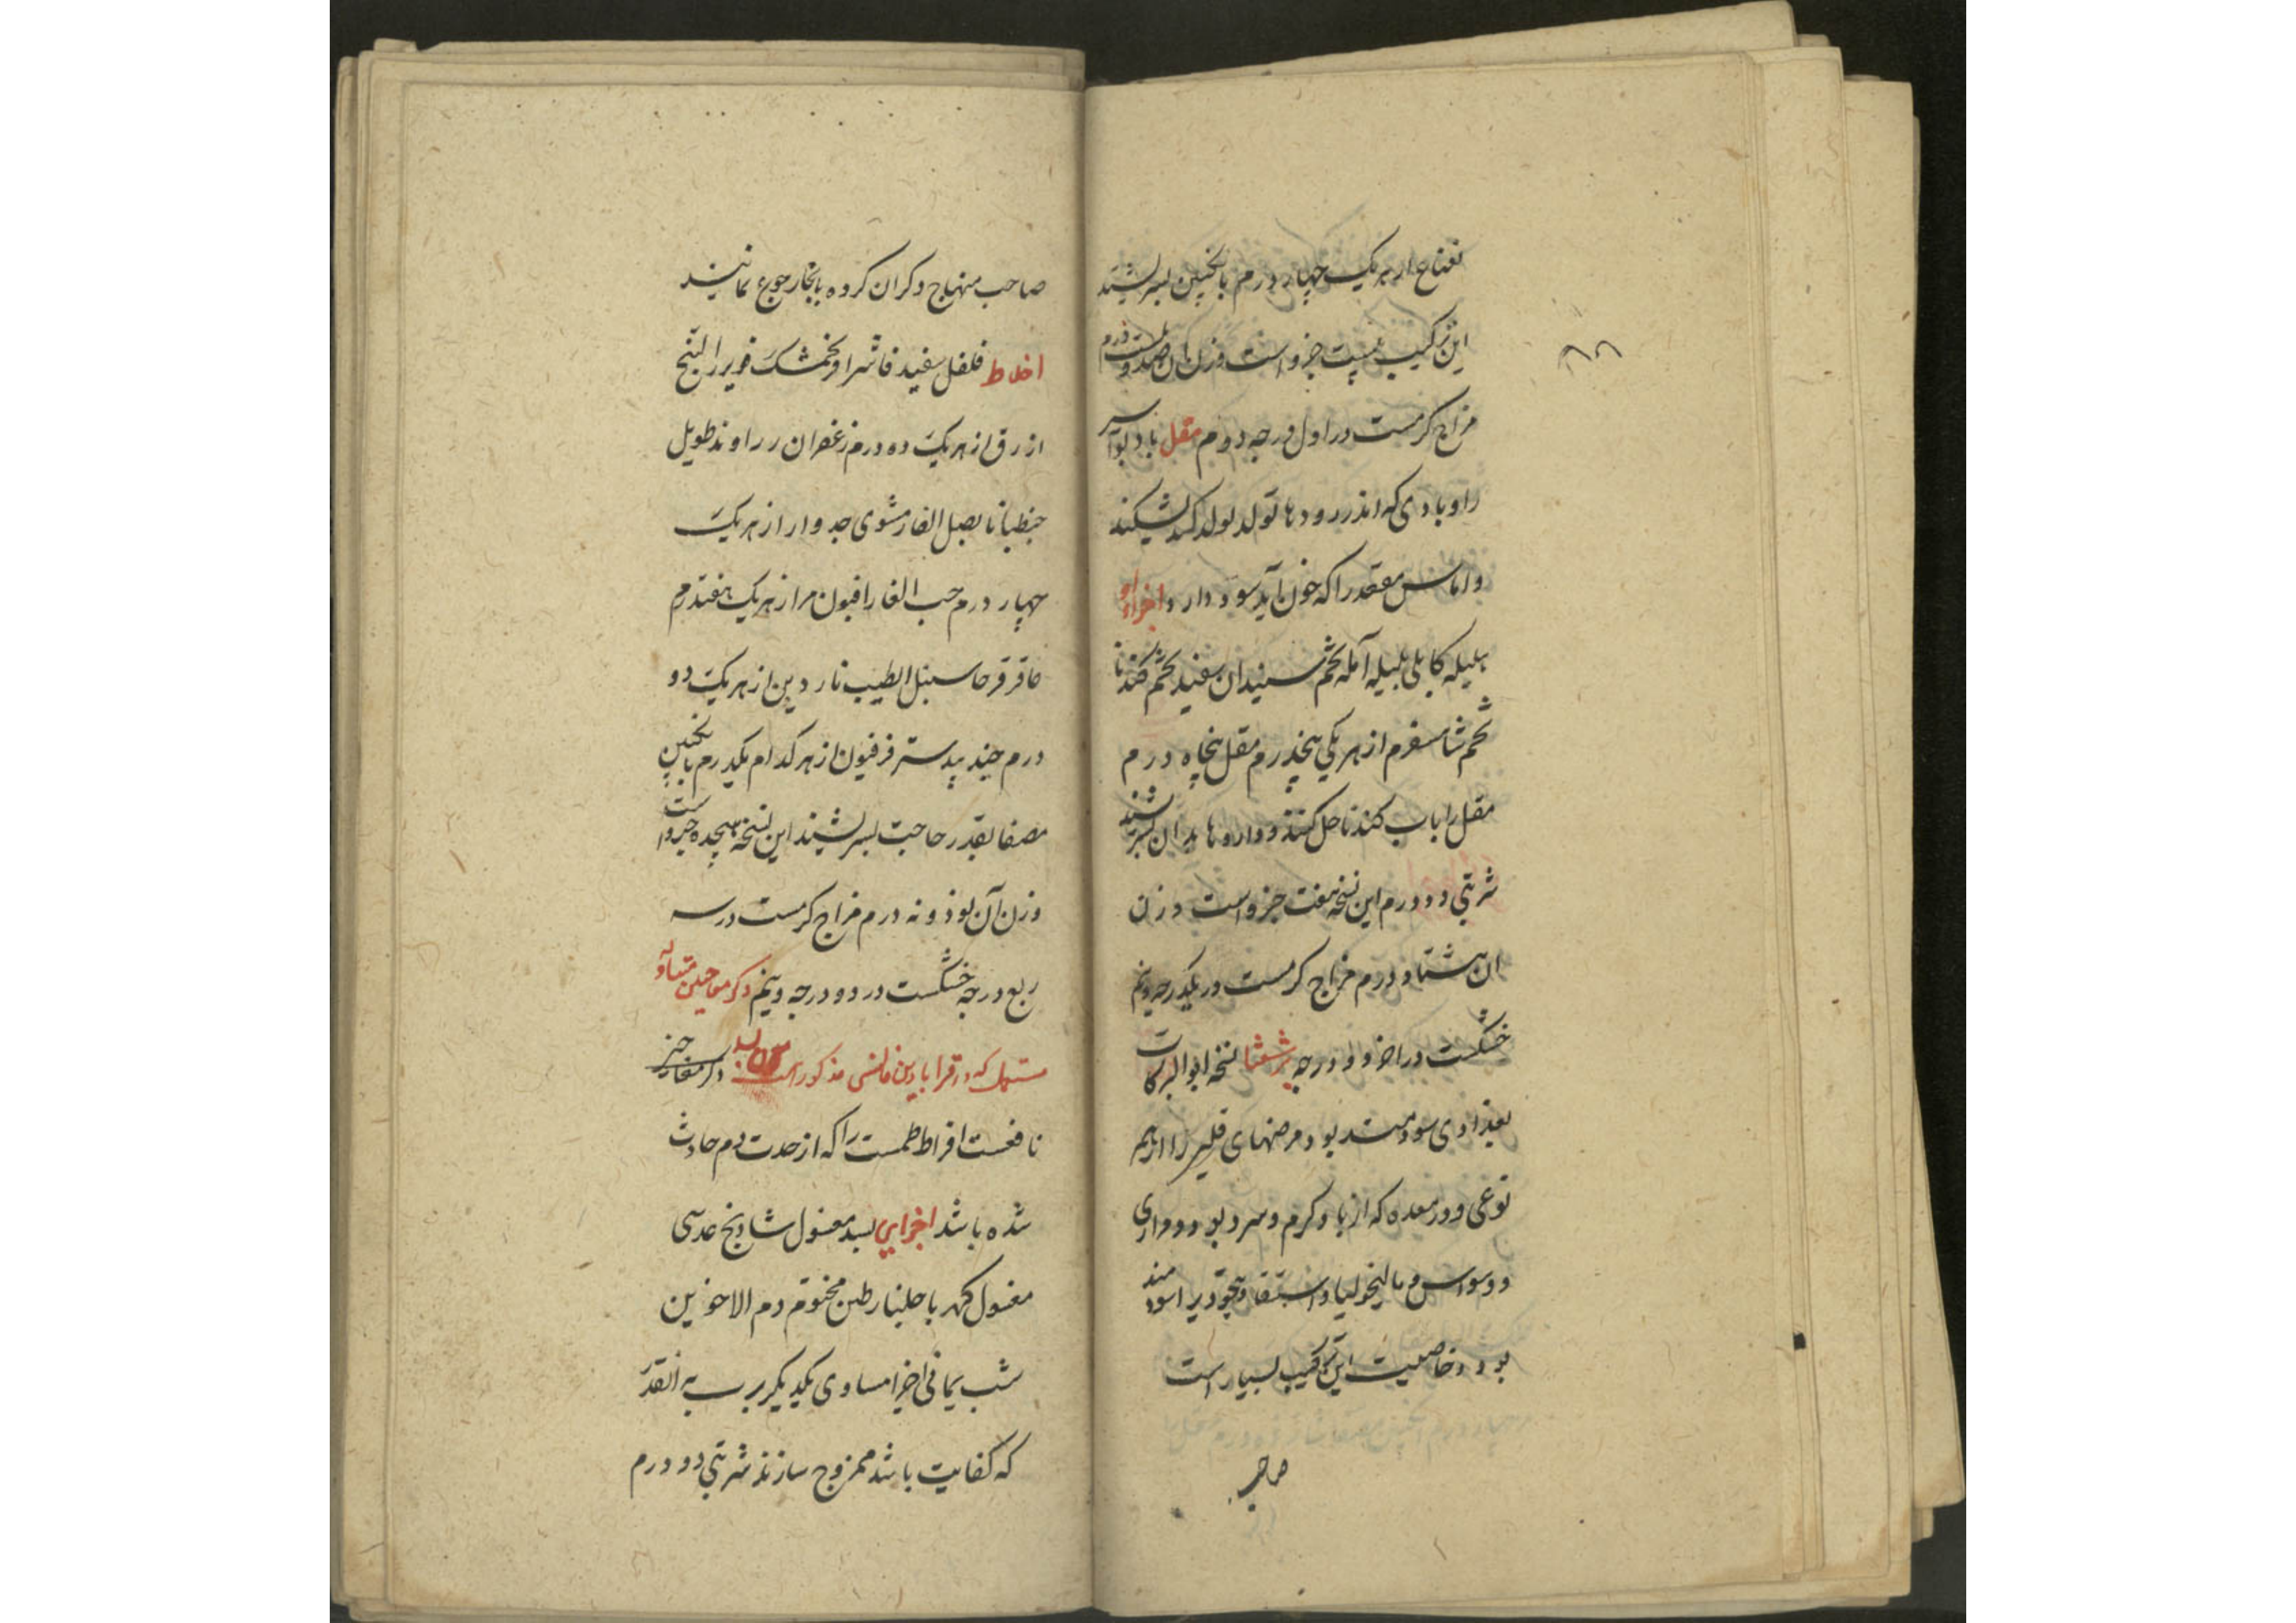 نعناع از هر یک چهار درم بانگبین بسرشند
این ترکیب بیست جزو است وزن آن صد و درم
مزاج گرمست در اول درجه دوم مقل باد بواسیر
را و بادی که اندر رودها تولد تولد کند بشکند
و اماس مقعد را که خون آید سود دارد اجزاء او
هلیله کابلی بلیله آمله تخم سپندان سفید تخم کندنا
تخم شاهسفرم از هر یکی پنجدرم مقل پنجاه درم
مقل را باب کندنا حل کنند و داروها بدان بسرشند
شربتی دو درم این نسخه هفت جزو است وزن
ان هشتاد درم مزاج گرمست در یکدرجه و نیم
خشکست در اخر دو درجه برشعثا نسخه ابوالبرکات
بغدادی سودمند بود مرضهای را از هر
نوعی و درمعده که از باد گرم و سرد بود و دواری
و وسواس و مالیخولیا و استسقا و را سودمند
بود و خاصیت این ترکیب بسیار است
صاحب
۸۸
صاحب منهاج ذکر ان کرده بانجا رجوع نمایند
اخلاط فلفل سفید فاشرا فنجمشک زریر البنج
ازرق از هر یک ده درم زعفران راوند طویل
جنطیانا بصل الفار مشوی جدوار از هر یک
چهار درم حب الغار افیون مر از هر یک هفتدرم
عاقرقرحا سنبل الطیب ناردین از هر یک دو
درم جندبیدستر فرفیون از هر کدام یکدرم بانگبین
مصفا بقدر حاجت بسرشند این نسخه هیجده جزو است
وزن آن نود و نه درم مزاج گرمست در سه
ربع درجه خشکست در دو درجه و نیم ذکر معاجین متداوله
مستعمل که در قرابادین قلانسی مذکور است معجون بسد دیگر
نافعست افراط طمث را که از حدت دم حادث
شده باشد اجزای بسد مغسول شادنج عدسی
مغسول کهربا جلنار طین مختوم دم الاخوین
شب یمانی اجزا مساوی یکدیگر برب به انقدر
که کفایت باشد ممزوج سازند شربتی دو درم